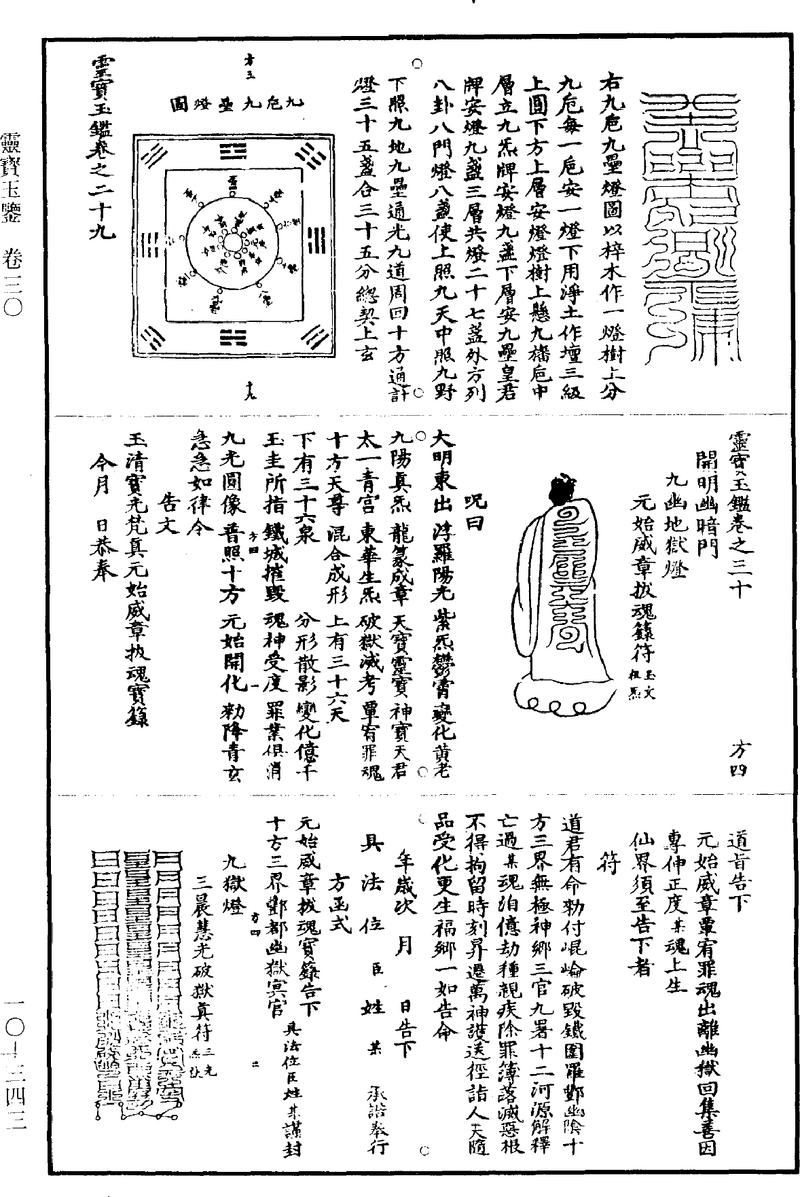 右九巵九壘燈圖以梓木作一燈樹上分
九巵每一巵安一燈下用淨土作壇三級
上圓下方上層安燈燈樹上懸九幡巵中
層立九炁牌安燈九盞下層安九壘皇君
牌安燈九盞三層共燈二十七盞外方列
八卦八門燈八盞使上照九天中照九野
下照九地九壘通光九道周回十方通計
燈三十五盞合三十五分總契上玄
九巵九壘燈圖
靈寶玉鑑卷之二十九
靈寶玉鑑卷之三十
方四
開明幽暗門
九幽地獄燈
元始威章拔魂籙符玉文祖炁
呪曰
大明東出 浮羅陽光 紫炁鬱霄 變化黃老
九陽真炁 龍篆成章 天寶靈寶 神寶天君
太一青宮 東華生炁 破獄滅考 覃宥罪魂
十方天尊 混合成形 上有三十六天
下有三十六泉 分形散影 變化億千
玉圭所指 鐵城摧毀 魂神受度 罪業俱消
九光圓像 普照十方 元始開化 勑降青玄
急急如律令
告文
玉清寶光梵真元始威章拔魂寶籙
今月 日恭奉
道旨告下
元始威章覃宥罪魂出離幽獄回集善因
專伸正度某魂上生
仙界須至告下者
符
道君有命勑付崐崘破毀鐵圍羅酆幽陰十
方三界無極神鄉三官九署十二河源解釋
亡過某魂洎億劫種親疾除罪簿落滅惡根
不得拘留時刻昇遷萬神護送徑詣人天隨
品受化更生福鄉一如告命
年歲次 月 日告下
具法位臣姓某承誥奉行
方函式
元始威章拔魂寶籙告下
十方三界酆都幽獄冥官 具法位臣姓某謹封
九獄燈
三晨慧光破獄真符三光
靈寶玉鑒 卷三〇
一〇—三四三